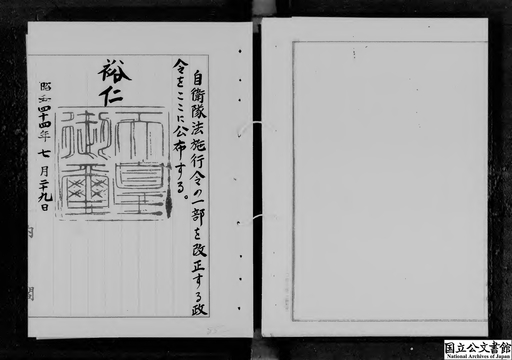 自衛隊法施行令の一部を改正する政
令をここに公布する。
裕仁
天皇
御璽
昭和四十四年七月二十九日
内閣
国立公文書館
National Archives of Japan